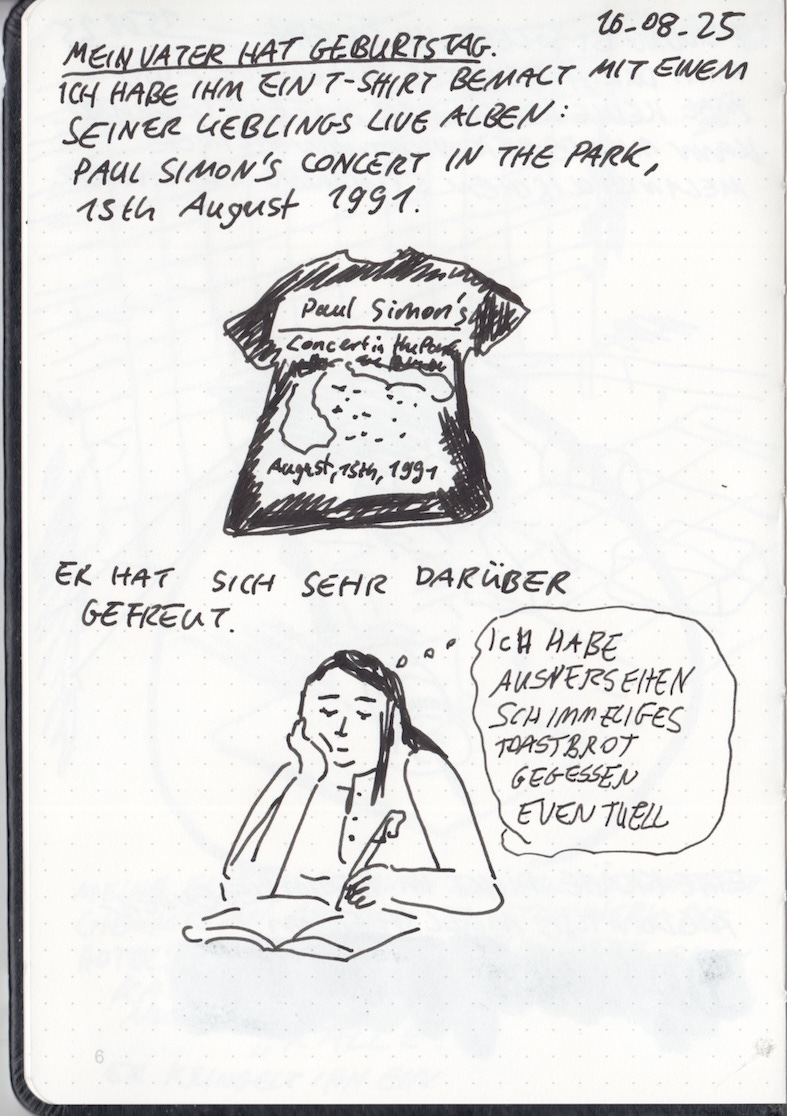 16-08-25
MEIN VATER HAT GEBURTSTAG.
ICH HABE IHM EIN T-SHIRT BEMALT MIT EINEM
SEINER LIEBLINGS LIVE ALBEN:
PAUL SIMON'S CONCERT IN THE PARK,
15th August 1991.
Paul Simon's
Concert in the Park
August, 15th, 1991
ER HAT SICH SEHR DARÜBER
GEFREUT.
ICH HABE
AUSVERSEHEN
SCHIMMELIGES
TOASTBROT
GEGESSEN
EVENTUELL
6